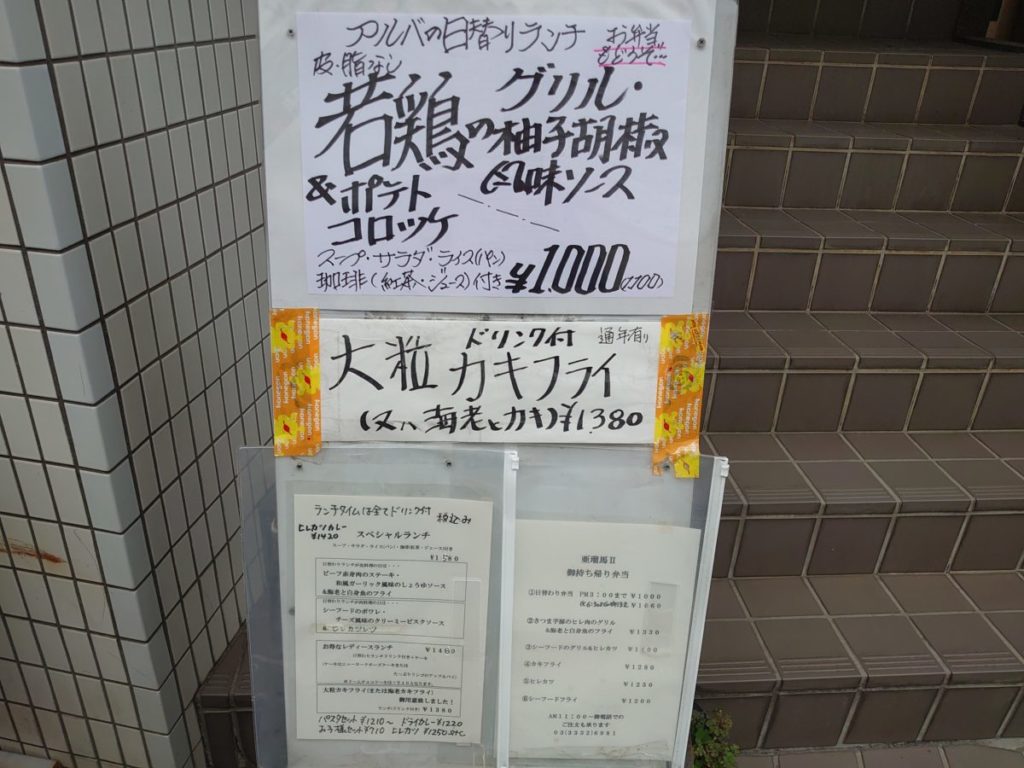 アルバの日替りランチ
お弁当
もどうぞ…
皮・脂なし
若鶏のグリル・
柚子胡椒
風味ソース
&ポテト
コロッケ
スープ・サラダ・ライス(パン)
珈琲(紅茶・ジュース)付き ¥1,000
ドリンク付 通年有り
大粒 カキフライ
(又ハ 海老とカキ)¥1,380
ランチタイムは全てドリンク付 税込み
ヒレカツカレー
¥1420
スペシャルランチ
スープ・サラダ・ライス(パン)・珈琲(紅茶・ジュース)付き
¥1,580
日替わりランチが肉料理の日は・・・
ビーフ赤身肉のステーキ・
和風ガーリック風味のしょうゆソース
&海老と白身魚のフライ
日替わりランチが魚料理の日は・・・
シーフードのポワレ・
チーズ風味のクリーミービスクソース
& ヒレカツレツ
お得なレディースランチ ¥1480
日替わりランチドリンク付き+ケーキ
大粒カキフライ(または海老カキフライ)
御用意致しました!
ランチ(ドリンク付き) ¥1380
パスタセット ¥1210〜 ドライカレー ¥1220
お子様セット ¥710 ヒレカツ ¥1250 etc
亜瑠馬Ⅱ
御持ち帰り弁当
①日替わり弁当 PM3:00まで ¥1000
¥1060
②さつま芋豚のヒレ肉のグリル
&海老と白身魚のフライ ¥1330
③シーフードのグリル&ヒレカツ ¥1400
④カキフライ ¥1280
⑤ヒレカツ ¥1250
⑥シーフードフライ ¥1200
AM11:00〜御電話での
ご注文も承ります
03(3332)6981